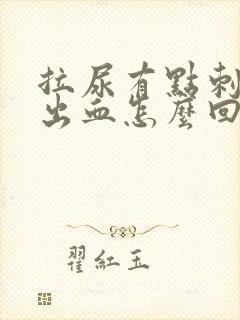 拉尿有點刺
出血怎麼回
翟紅玉